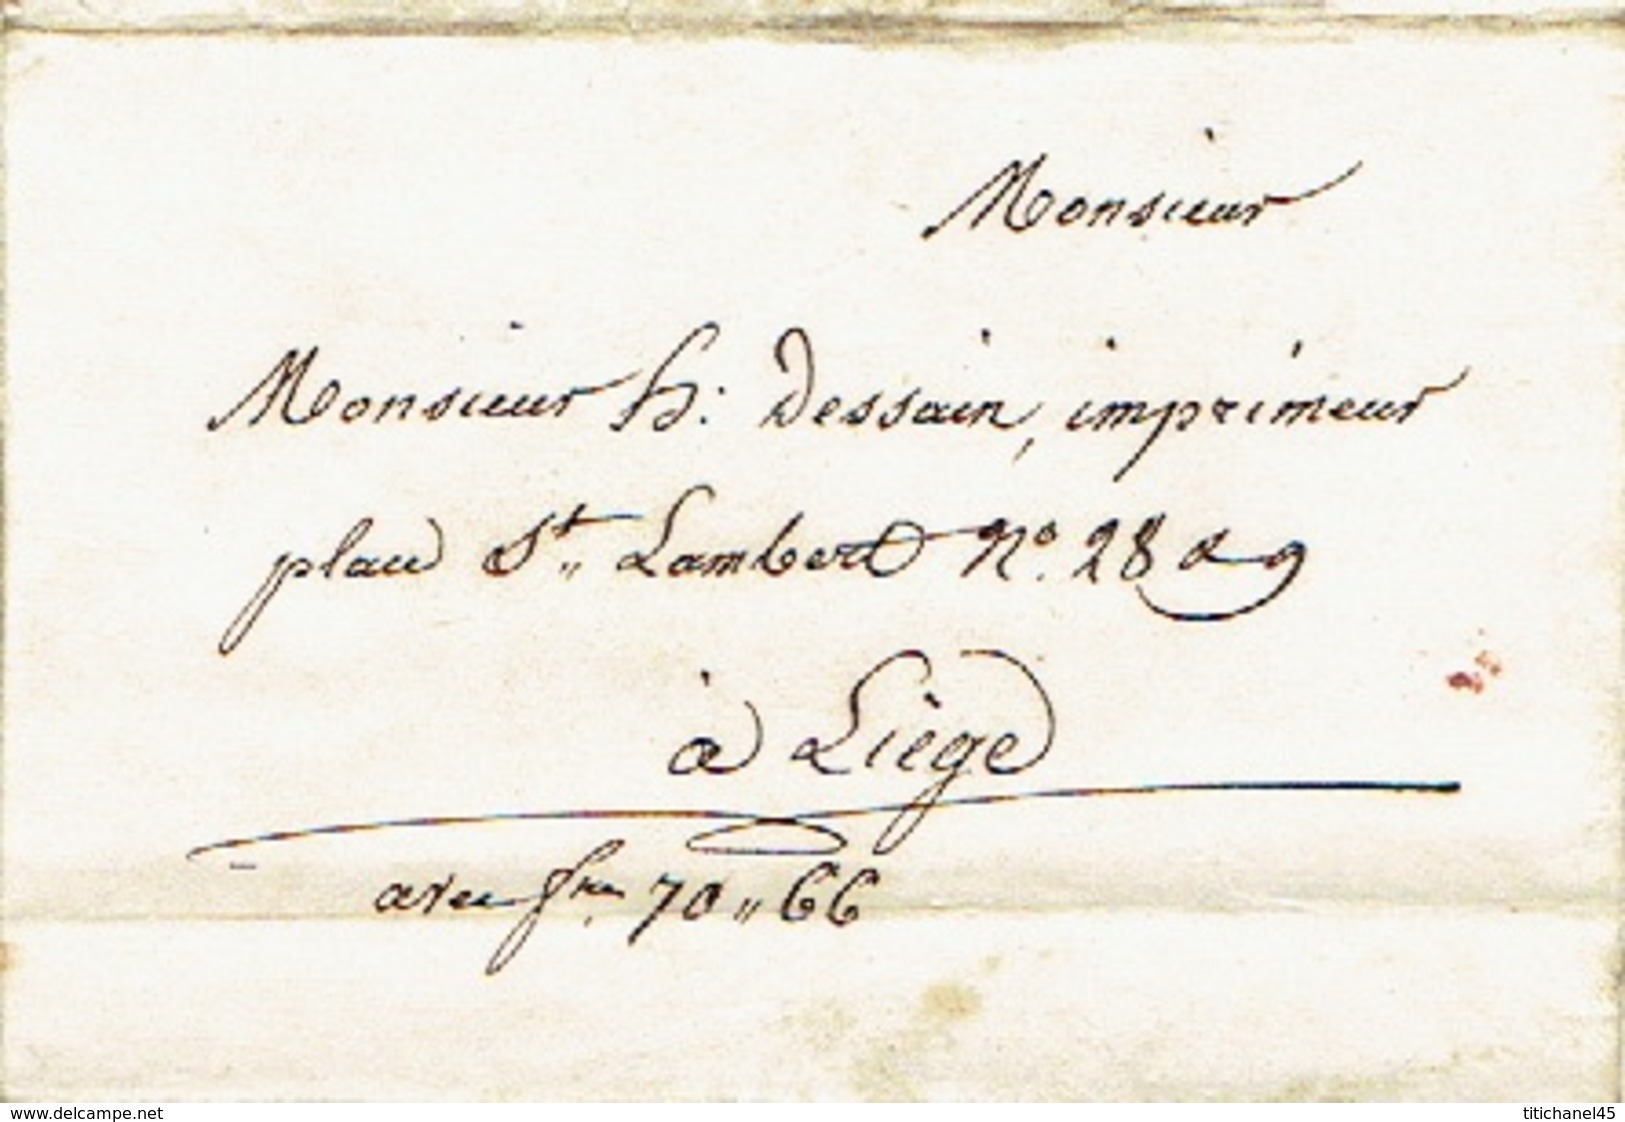 Monsieur
Monsieur H: Dessain, imprimeur
place St„ Lambert No. 28 & 9
à Liège
avec frs. 70„66
www.delcampe.net
titichanel45